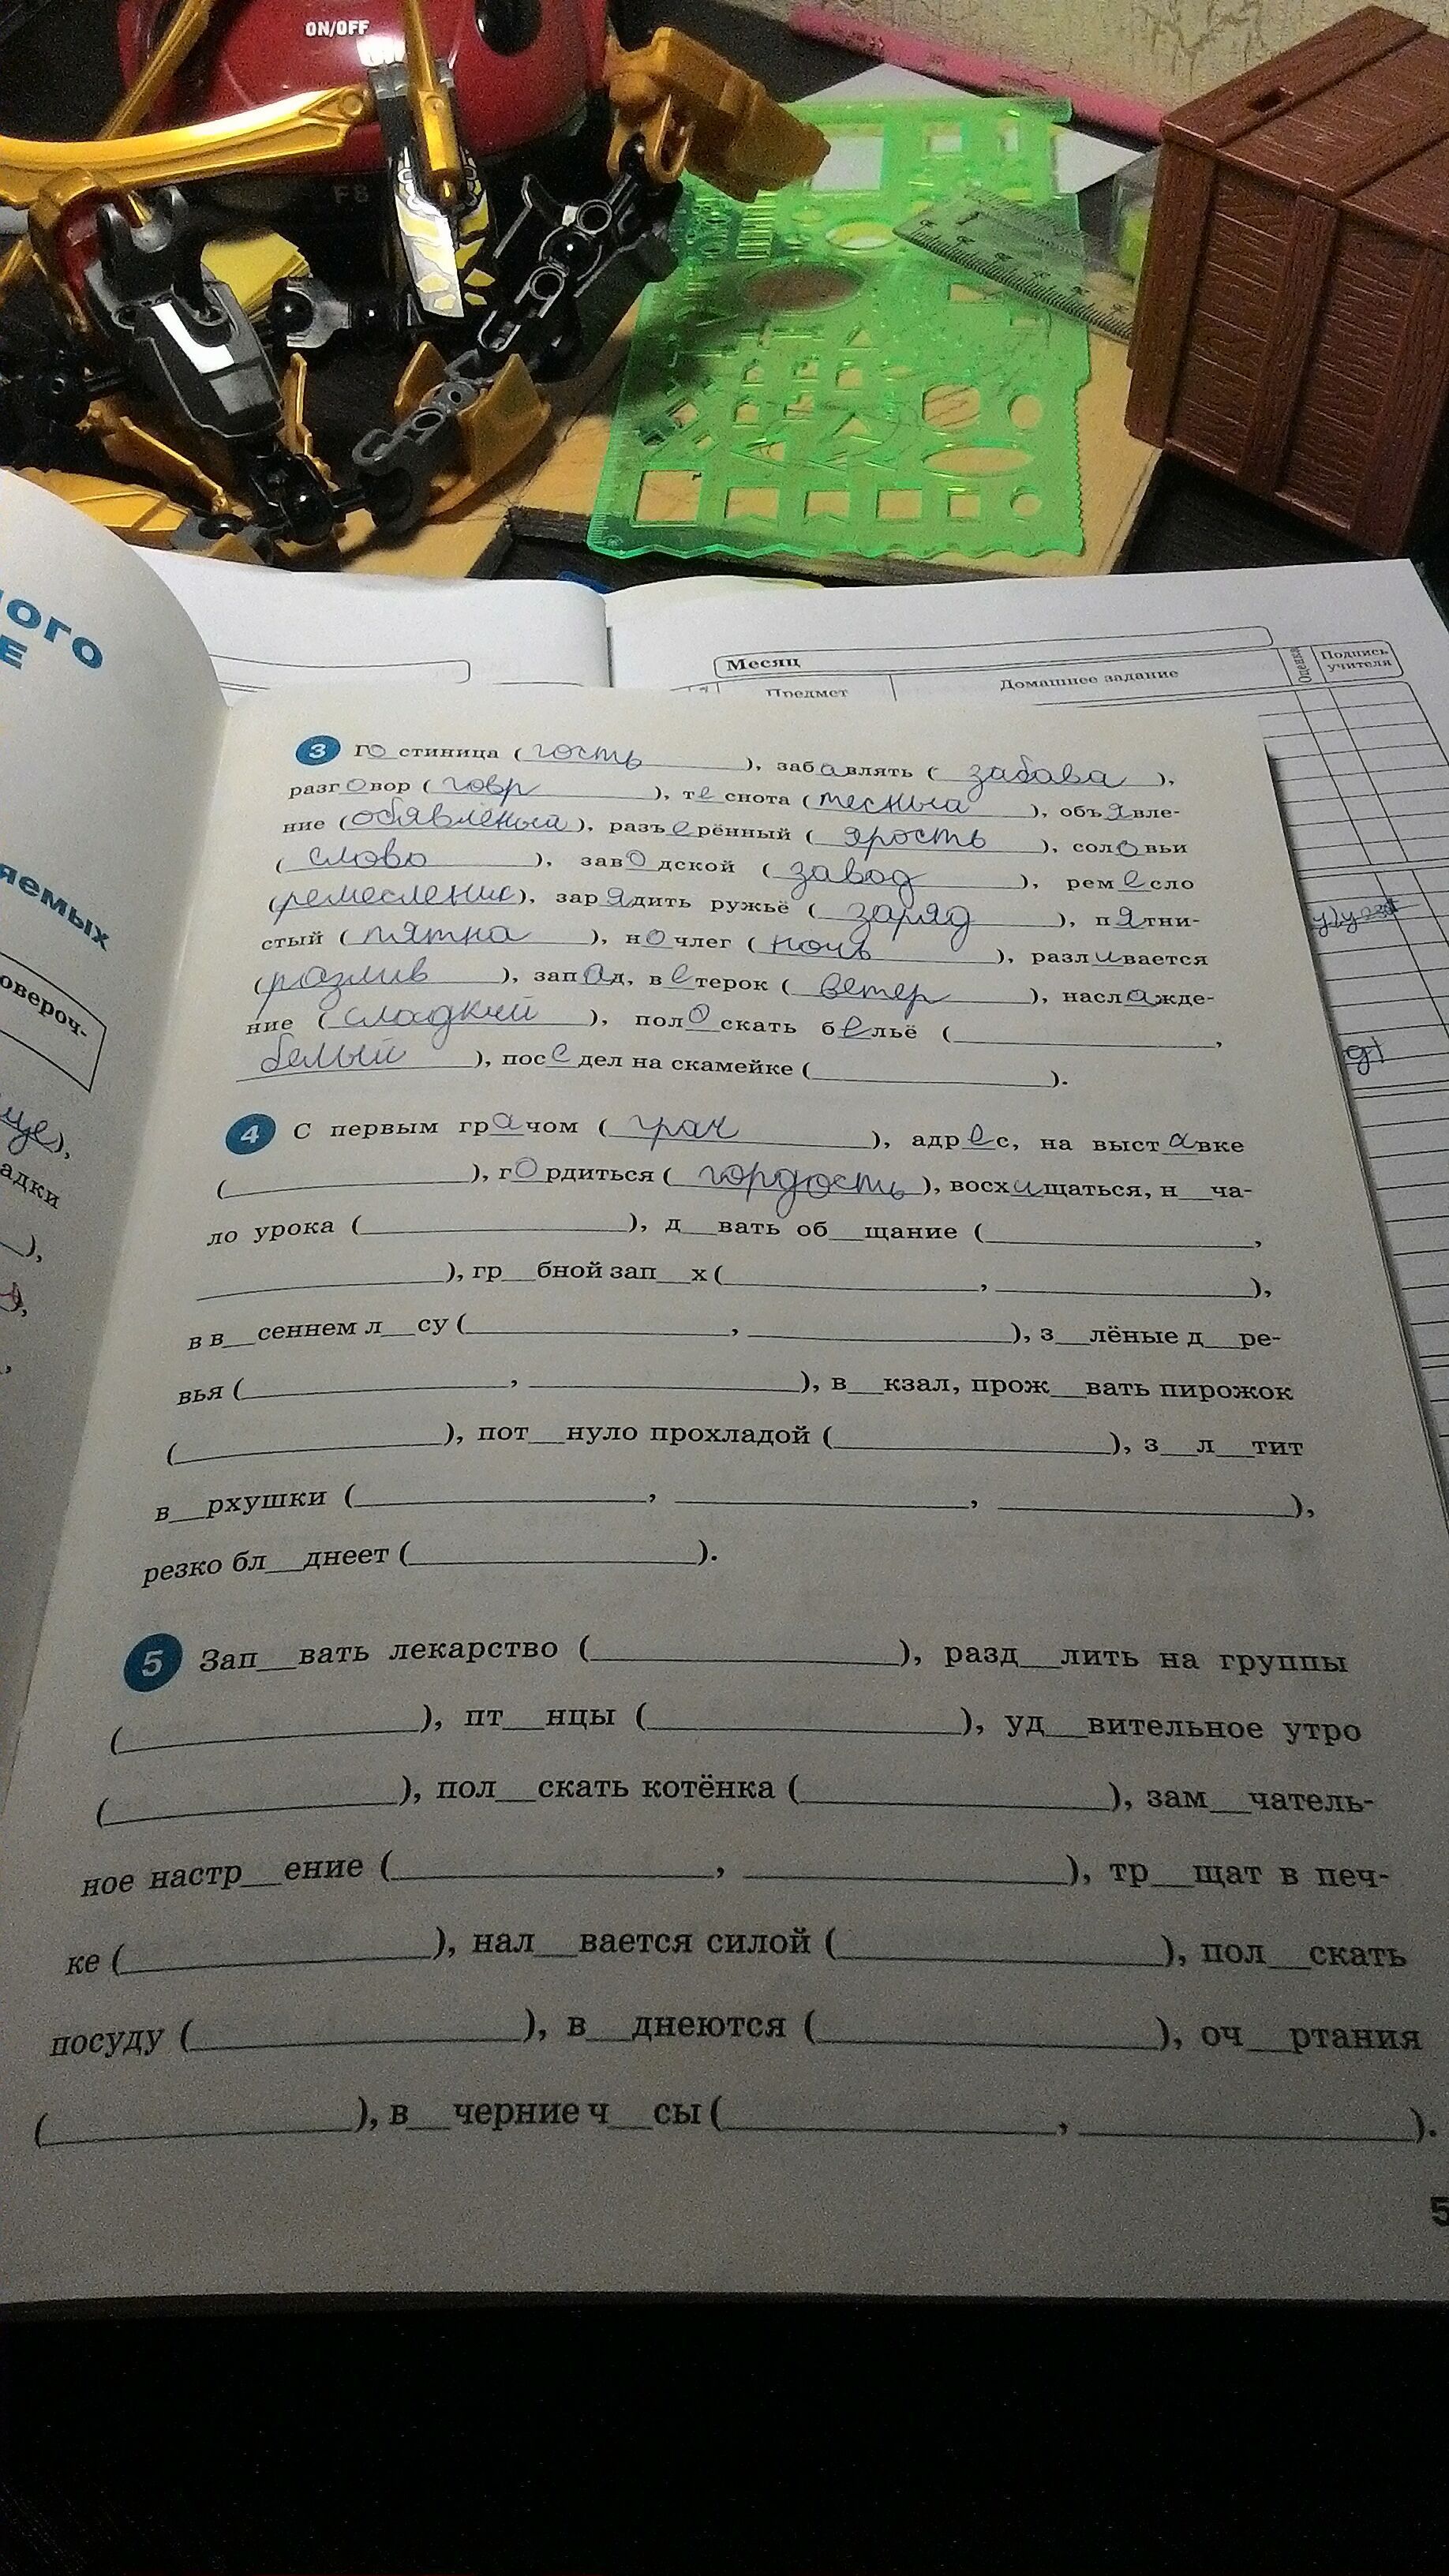 ON/OFF
F8
ОГО
Е
яемых
овероч-
ще),
адки
Месяц
Предмет
Домашнее задание
Оценка
Подпись
учителя
3 Го стиница ( гость ), забавлять ( забава ),
разговор ( говр ), те снота ( тесныа ), объявле-
ние (обявлёный), разъерённый ( ярость ), соловьи
( слово ), заво дской ( завод ), ремесло
(ремесленик), зарядить ружьё ( заряд ), пятни-
стый ( пятна ), ночлег ( ночь ), разливается
(розлив ), запад, ветерок ( ветер ), наслажде-
ние ( сладкий ), поло скать бельё (__________,
белый ), посе дел на скамейке (__________).
4 С первым грачом ( грач ), адрес, на выставке
(__________), гордиться ( гордость ), восхищаться, н__ча-
ло урока (__________), д__вать об__щание (__________,
__________), гр__бной зап__х (__________, __________),
в в__сеннем л__су (__________, __________), з__лёные д__ре-
вья (__________, __________), в__кзал, прож__вать пирожок
(__________), пот__нуло прохладой (__________), з__л__тит
в__рхушки (__________, __________, __________),
резко бл__днеет (__________).
5 Зап__вать лекарство (__________), разд__лить на группы
(__________), пт__нцы (__________), уд__вительное утро
(__________), пол__скать котёнка (__________), зам__чатель-
ное настр__ение (__________, __________), тр__щат в печ-
ке (__________), нал__вается силой (__________), пол__скать
посуду (__________), в__днеются (__________), оч__ртания
(__________), в__черние ч__сы (__________, __________).
5